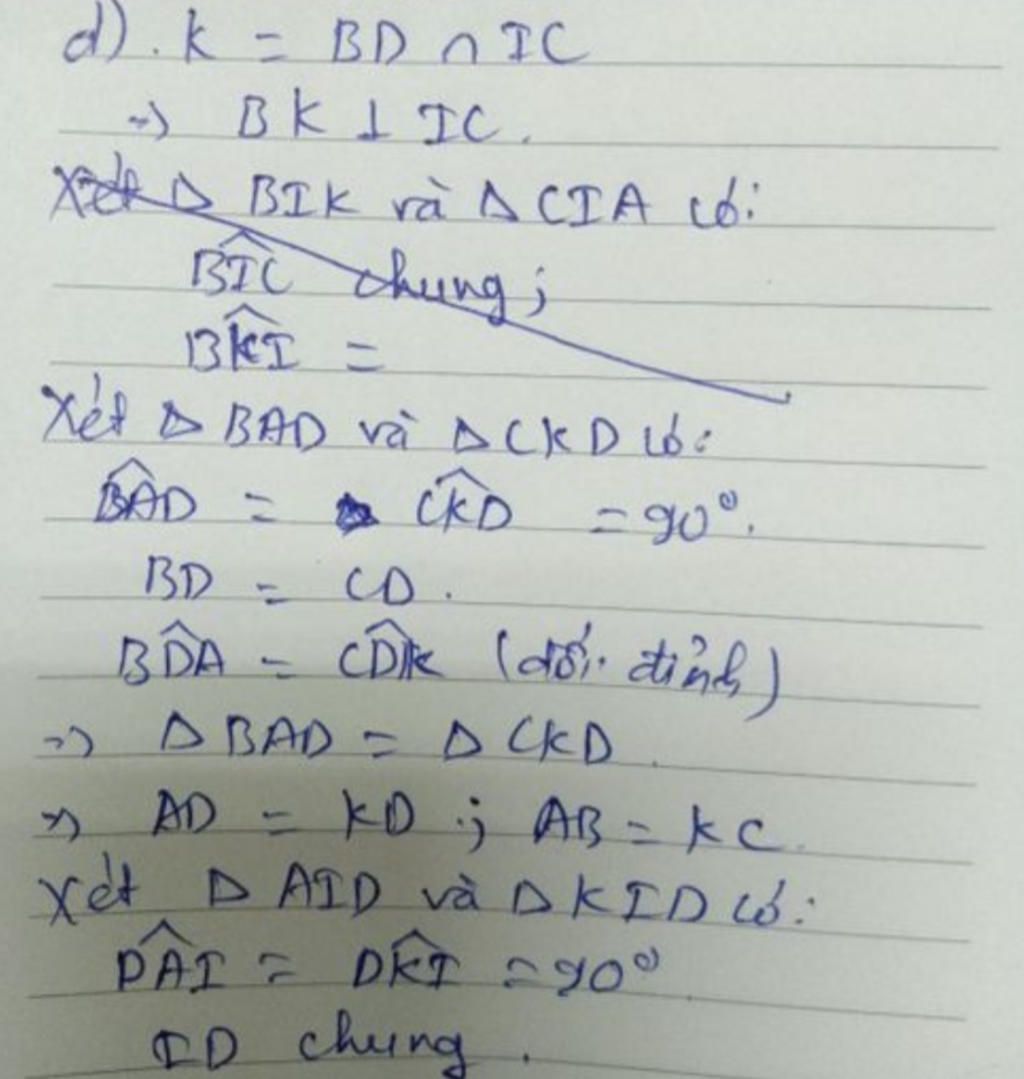 d). K = BD ∩ IC
→ BK ⊥ IC.
Xét Δ BIK và Δ CIA có:
B̂IC chung;
B̂KI =
Xét Δ BAD và Δ CKD có:
B̂AD = ĈKD = 90°.
BD = CD.
B̂DA = ĈDK (đối đỉnh)
→ Δ BAD = Δ CKD.
→ AD = KD; AB = KC.
Xét Δ AID và Δ KID có:
D̂AI = D̂KI = 90°.
ID chung.